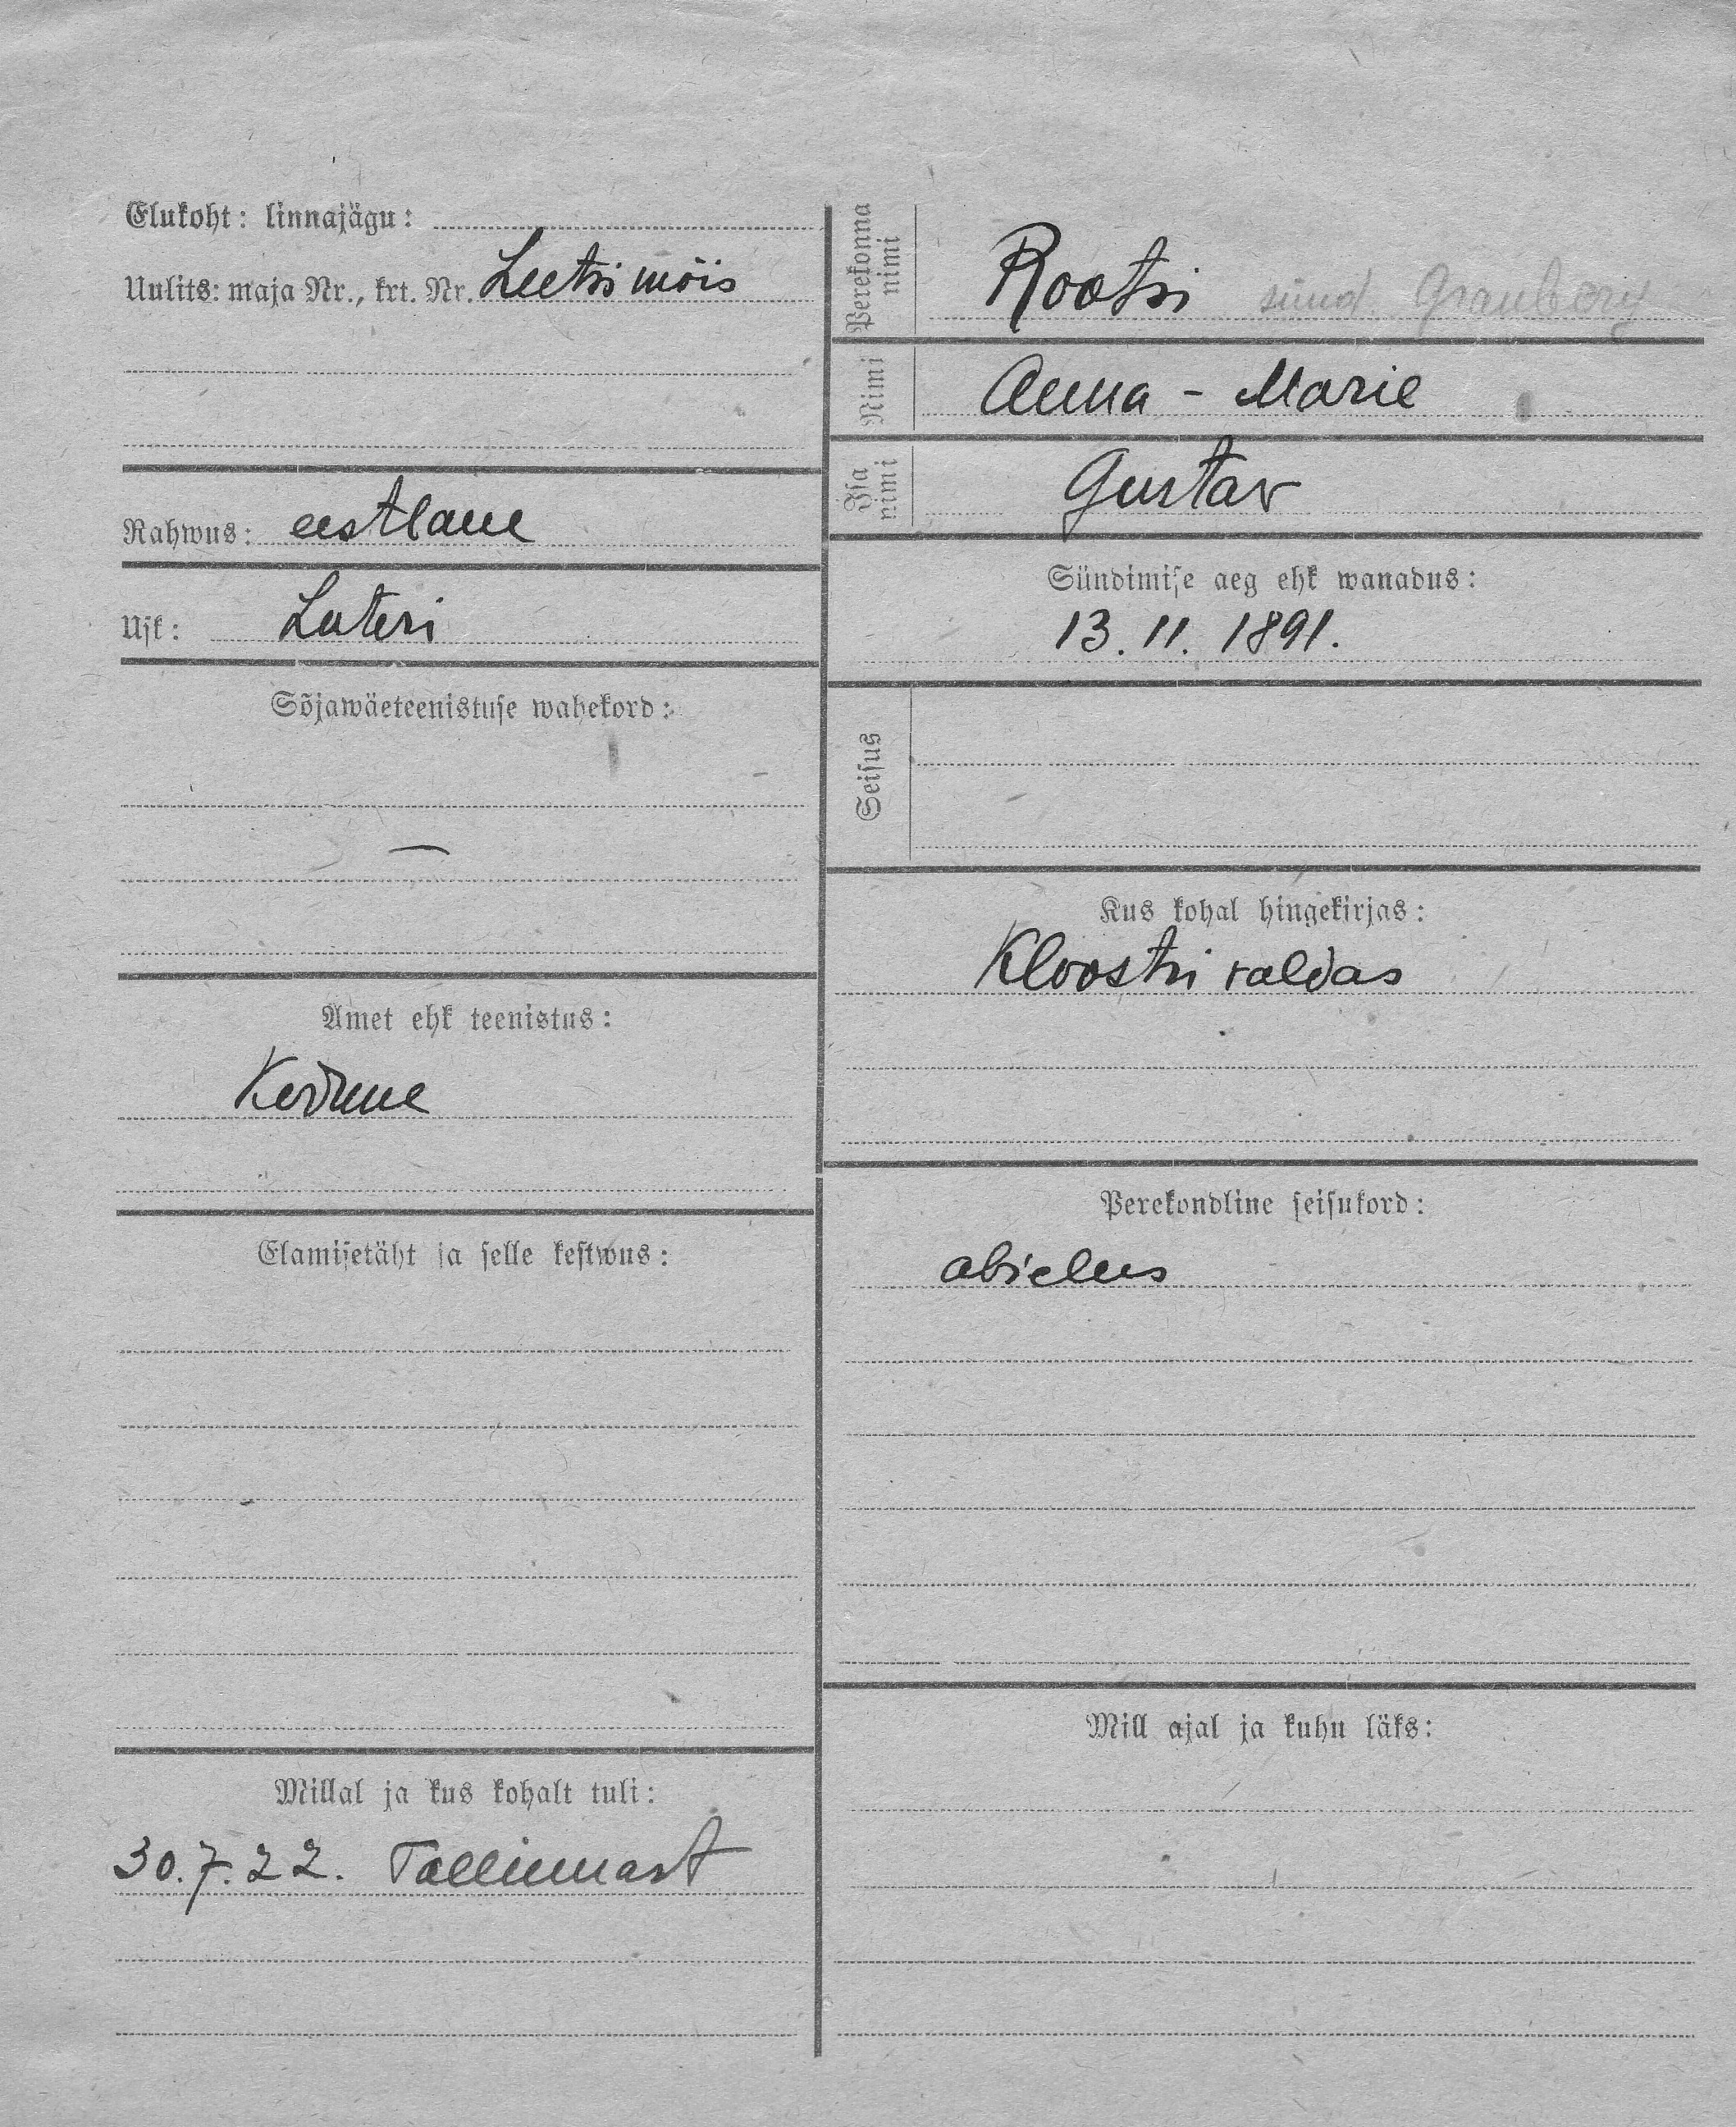 Elukoht: linnajägu:
Uulits: maja Nr., krt. Nr. Leetsi mõis
Rahwus: eestlane
Usk: Luteri
Sõjawäeteenistuse wahekord:
—
Amet ehk teenistus:
Elamisetäht ja selle kestwus:
Millal ja kus kohalt tuli:
30.7.22. Tallinnast
Perekonna nimi Rootsi sünd. Granberg
Nimi Anna - Marie
Isa nimi Gustav
Sündimise aeg ehk wanadus:
13. 11. 1891.
Seisus
Kus kohal hingekirjas:
Kloostri valdas
Perekondline seisukord:
abielus
Mill ajal ja kuhu läks: